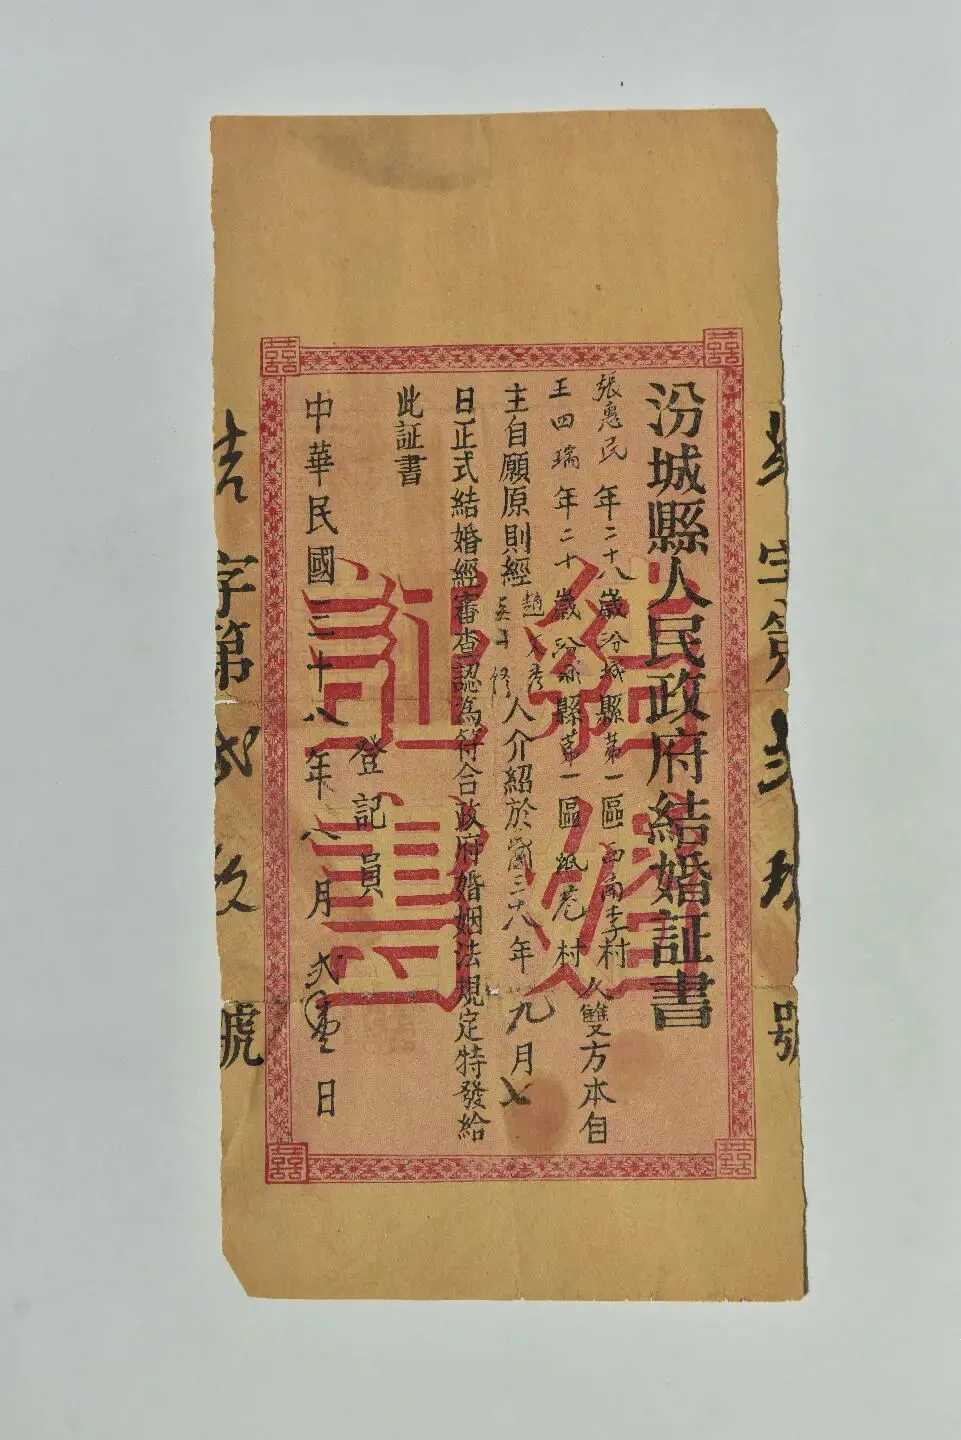 字第號
汾城縣人民政府結婚証書
張惠民年二十八歲汾城縣第一區西南李村人雙方本自
王四瑞年二十歲汾城縣第一區紙巷村
主自願原則經趙人介紹於國三十八年九月
日正式結婚經審查認為符合政府婚姻法規定特發給
此証書
登記員
中華民國三十八年八月日
結字第號
結婚
証書
囍
囍
囍
囍